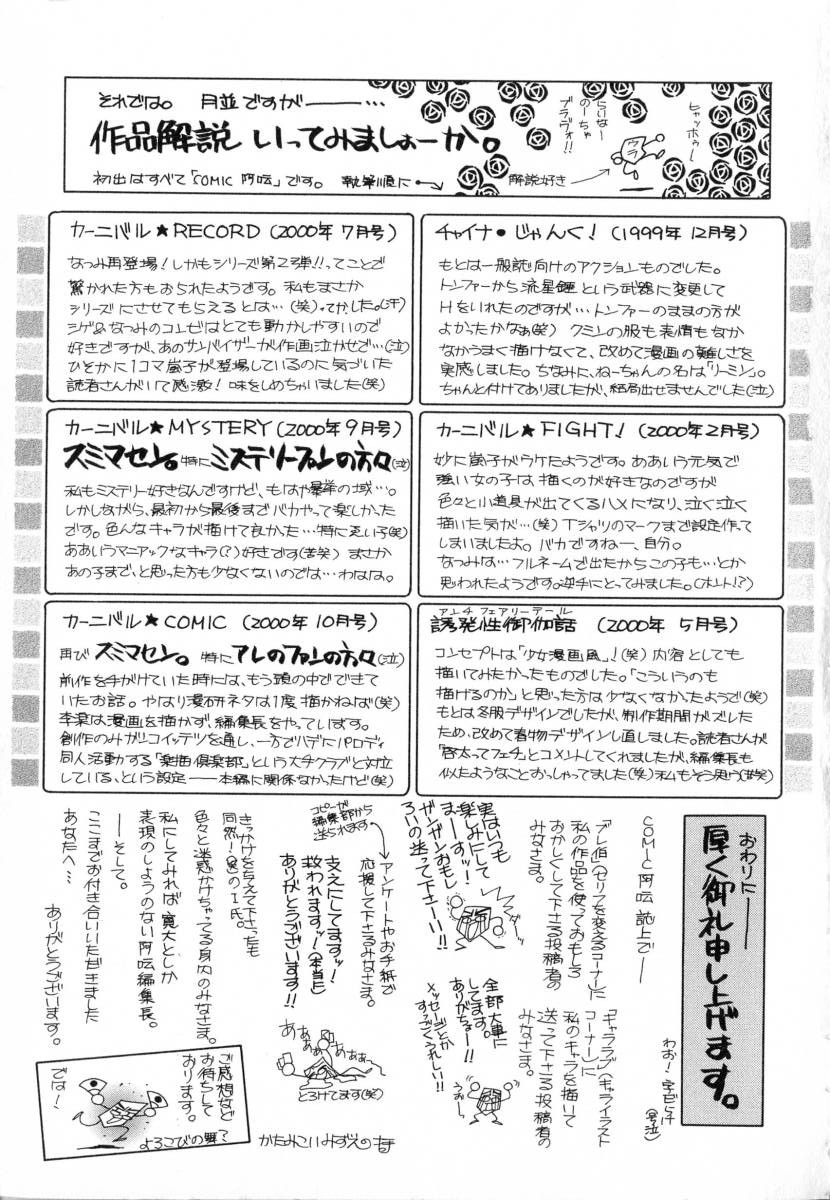 それでは。 月並ですが───…
作品解説 いってみましょーか。
初出はすべて「COMIC 阿吽」です。 執筆順に→
解説好き
ヒャッホゥー
ブラヴォ!!
チャイナ・じゃんく! (1999年12月号)
もとは一般誌向けのアクションものでした。
トンファーから流星錘という武器に変更して
Hをいれたのですが…トンファーのままの方が
よかったかなぁ(笑) クミンの服も表情もなか
なかうまく描けなくて、改めて漫画の難しさを
実感しました。ちなみに、ねーちゃんの名は「リーミン」。
ちゃんと付けてありましたが、結局出せませんでした(泣)
カーニバル★FIGHT! (2000年2月号)
妙に嵐子がウケたようです。ああいう元気で
強い女の子は 描くのが好きなのですが
色々と小道具が出てくるハメになり、泣く泣く
描いた気が…(笑) Tシャツのマークまで設定作って
しまいましたよ。バカですねー、自分。
なつみは…フルネームで出たからこの子も…とか
思われたようです。逆手にとってみました。(ホント!?)
アンチ フェアリーテール
誘発性御伽話 (2000年 5月号)
コンセプトは「少女漫画風」!(笑) 内容としても
描いてみたかったものでした。「こういうのも
描けるのか」と思った方は少なくなかったようで(笑)
もとは冬服デザインでしたが、制作期間がズレた
ため、改めて春物デザインし直しました。読者さんが
「啓太ってフェチ」とコメントしてくれましたが、編集長も
似たようなことおっしゃってました(笑) 私もそう思う(苦笑)
カーニバル★RECORD (2000年 7月号)
なつみ再登場!しかもシリーズ第2弾!!ってことで
驚かれた方もおられたようです。私もまさか
シリーズにさせてもらえるとは…(笑)。てか、した。(汗)
シゲ&なつみのコンビはとても動かしやすいので
好きですが、あのサンバイザーが作画泣かせで…(泣)
ひそかに1コマ嵐子が登場しているのに気づいた
読者さんがいて感激!味をしめちゃいました(笑)
カーニバル★MYSTERY (2000年9月号)
スミマセン。特にミステリーファンの方々(泣)
私もミステリー好きなんですけど、もはや暴挙の域…。
しかしながら、最初から最後までバカやって楽しかった
です。色んなキャラが描けて良かった…特に恵い子(笑)
ああいうマニアックなキャラ(?)好きです(苦笑) まさか
あの子まで、と思った方も少なくないのでは…わはは。
カーニバル★COMIC (2000年10月号)
再びスミマセン。特にアレのファンの方々(泣)
前作を手がけていた時には、もう頭の中でできて
いたお話。やはり漫研ネタは1度描かねば(笑)
李梁は漫画を描かず、編集長をやっています。
創作のみがリコイッテツを通し、一方でハデにパロディ
同人活動する「楽描倶楽部」という大手クラブと対立
している、という設定──本編に関係なかったけど(笑)
おわりに───
厚く御礼申し上げます。
COMIC阿吽 誌上で──
「ブレ伯」(セリフを変えるコーナー)に
私の作品を使っておもしろ
おかしくして下さる投稿者の
みなさま。
実はいつも
楽しみにして
まーーすッ!
ガンガンおもし
ろいの送って下さーい!!
「キャララブ」(キャライラスト
コーナー)に
私のキャラを描いて
送って下さる投稿者の
みなさま。
全部大事に
してます。
ありがちゅー!!
メッセージとか
すっごくうれしい!!
うおー
コピーが
編集部から
送られます
アンケートやお手紙で
応援して下さるみなさま。
支えにしてますッ!
救われますッ!(本当に)
ありがとうございます!!
あぁ
あぁぁぁ
とろけてます(笑)
きっかけを与えて下さったも
同然!(笑)のI氏。
色々と迷惑かけちゃってる身内のみなさま。
私にしてみれば寛大としか
表現のしようのない阿吽編集長。
──そして。
ここまでお付き合いいただきました
あなたへ…
ありがとうございます。
ご感想など
お待ちして
おります。
では!
よろこびの舞?
かたみこいみずえの